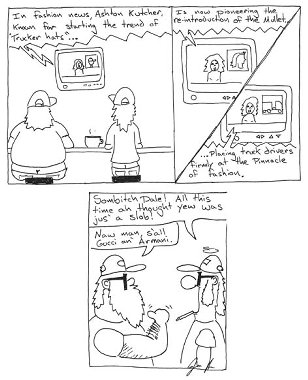 In fashion news, Ashton Kutcher,
Known for starting the trend of
"Trucker hats"...
Is now pioneering the
re-introduction of the Mullet,
...Placing truck drivers
firmly at the Pinnacle
of fashion.
Sombitch Dale! All this
time ah thought yew was
jus' a slob!
Naw man, s'all
Gucci an' Armani.